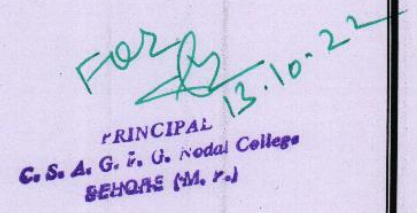 For
13.10.22
PRINCIPAL
C. S. A. G. P. G. Nodal College
SEHORE (M. P.)